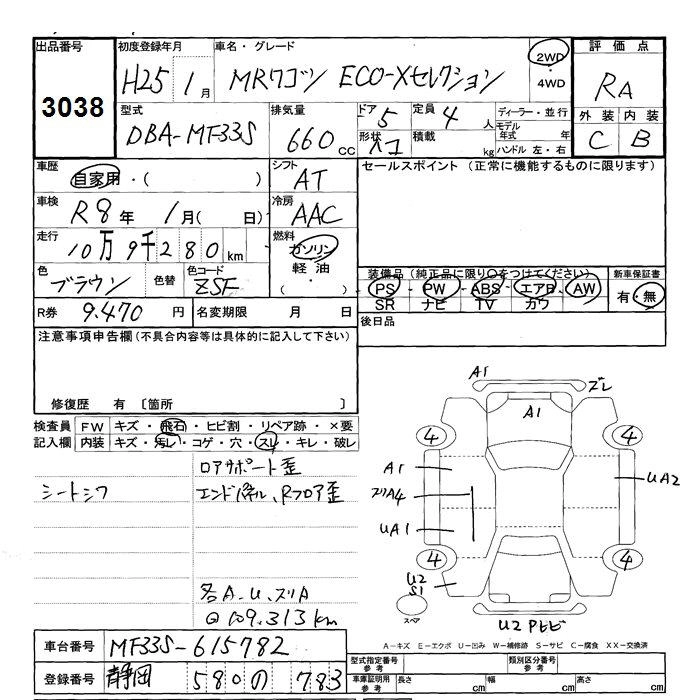 出品番号 初度登録年月 車名・グレード 評価点
3038 H25 1月 MRワゴン ECO-Xセレクション 2WD・4WD RA
型式 排気量 ドア 定員 ディーラー・並行 外装 内装
DBA-MF33S 660cc 5 4人 モデル年式 年 C B
形状 積載 kg ハンドル 左・右
車歴 シフト セールスポイント（正常に機能するものに限ります）
自家用・（ ） AT
車検 冷房
R8年 1月（ 日） AAC
走行 燃料
10万9千280km ガソリン
色 色替 色コード 軽油 装備品（純正品に限り○をつけてください） 新車保証書
ブラウン ZSF （ ） PS・PW・ABS・エアB・AW 有・無
SR ナビ TV カワ
R券 9.470円 名変期限 月 日 後日品
注意事項申告欄（不具合内容等は具体的に記入して下さい）
修復歴 有 〔箇所 〕
検査員 FW キズ・飛石・ヒビ割・リペア跡・×要
記入欄 内装 キズ・汚レ・コゲ・穴・スレ・キレ・破レ
ロアサポート歪
シートシワ エンドパネル、Rフロア歪
各A-U、スリA
@109.313km
A1
ズレ
A1
4 4
A1
スリA4 UA2
UA1
4 4
U2
S1
スペア
U2 Pヒビ
A－キズ E－エクボ U－凹み W－補修跡 S－サビ C－腐食 XX－交換済
車台番号 MF33S-615782
登録番号 静岡 580 の 783
型式指定番号 参考 類別区分番号 参考
車庫証明用 参考 長さ cm 幅 cm 高さ cm